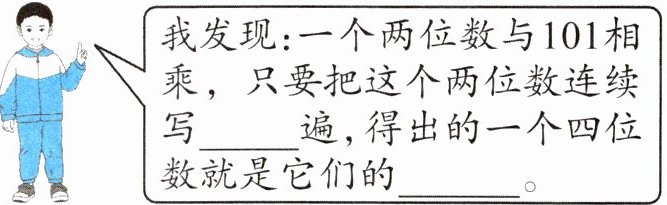 我发现:一个两位数与101相
乘，只要把这个两位数连续
写______遍,得出的一个四位
数就是它们的________。